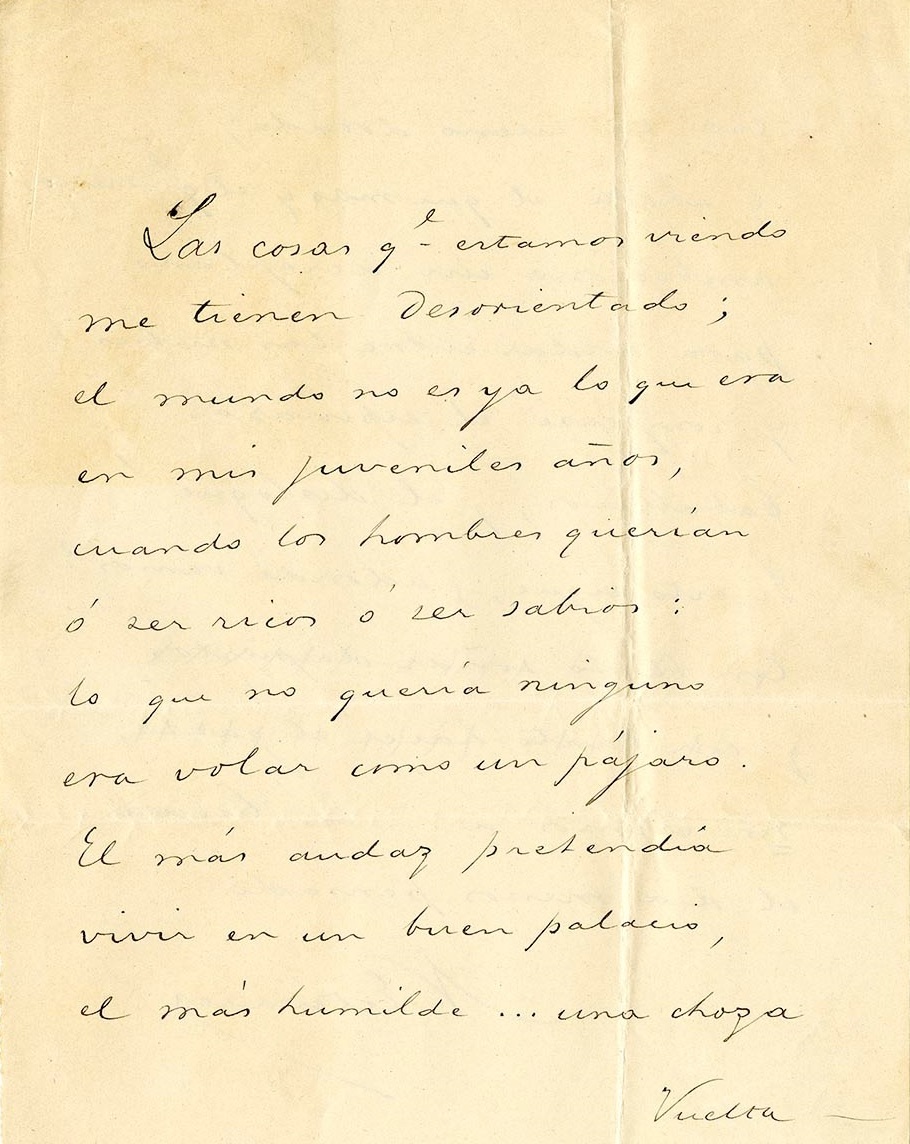 Las cosas qᵉ estamos viendo
me tienen desorientado;
el mundo no es ya lo que era
en mis juveniles años,
cuando los hombres querían
ó ser ricos ó ser sabios:
lo que no quería ninguno
era volar como un pájaro.
El más audaz pretendía
vivir en un buen palacio,
el más humilde ... una choza
Vuelta —